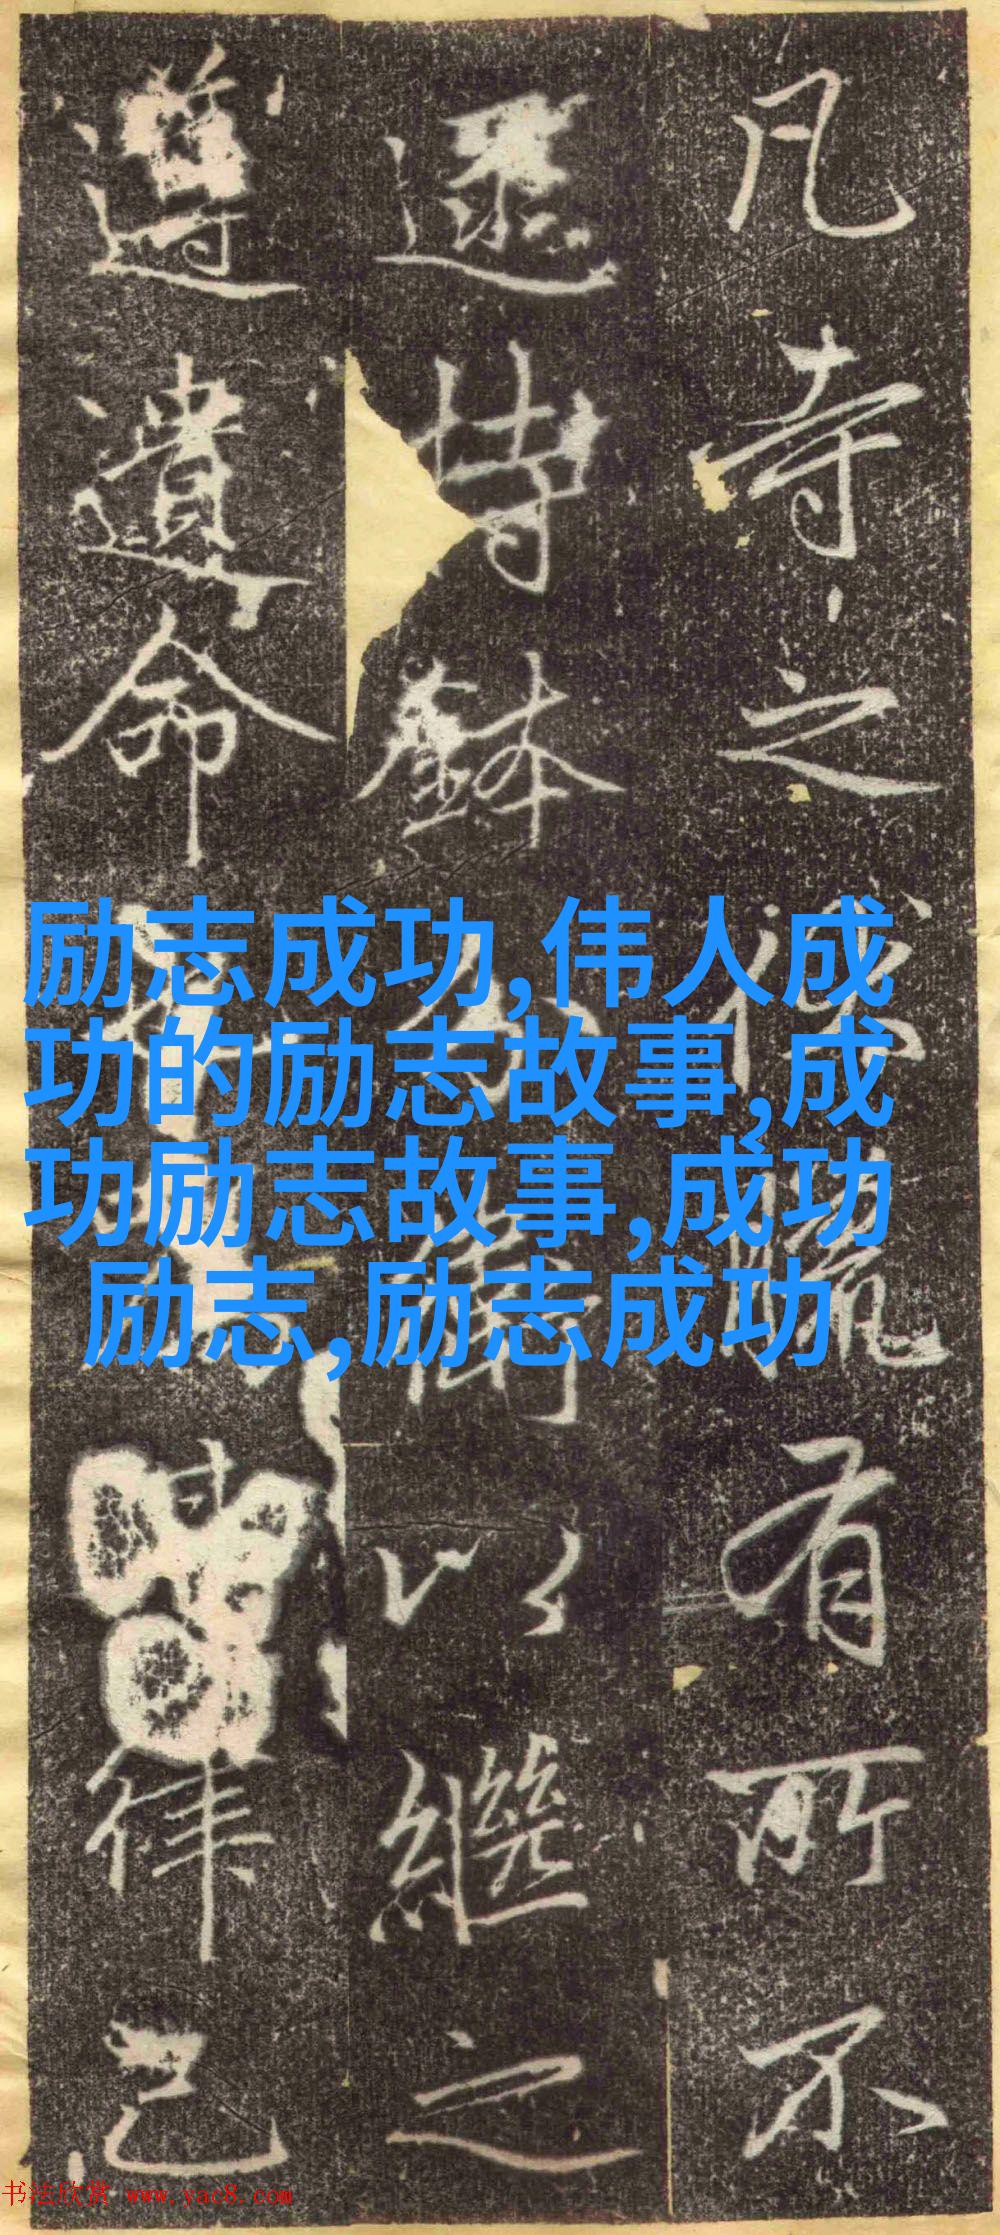 凡寺之
有所不
遝持鉢
以繼之
遵遺命
律己
励志成功,伟人成
功的励志故事,成
功励志故事,成功
励志,励志成功
书法欣赏 www.yac8.com